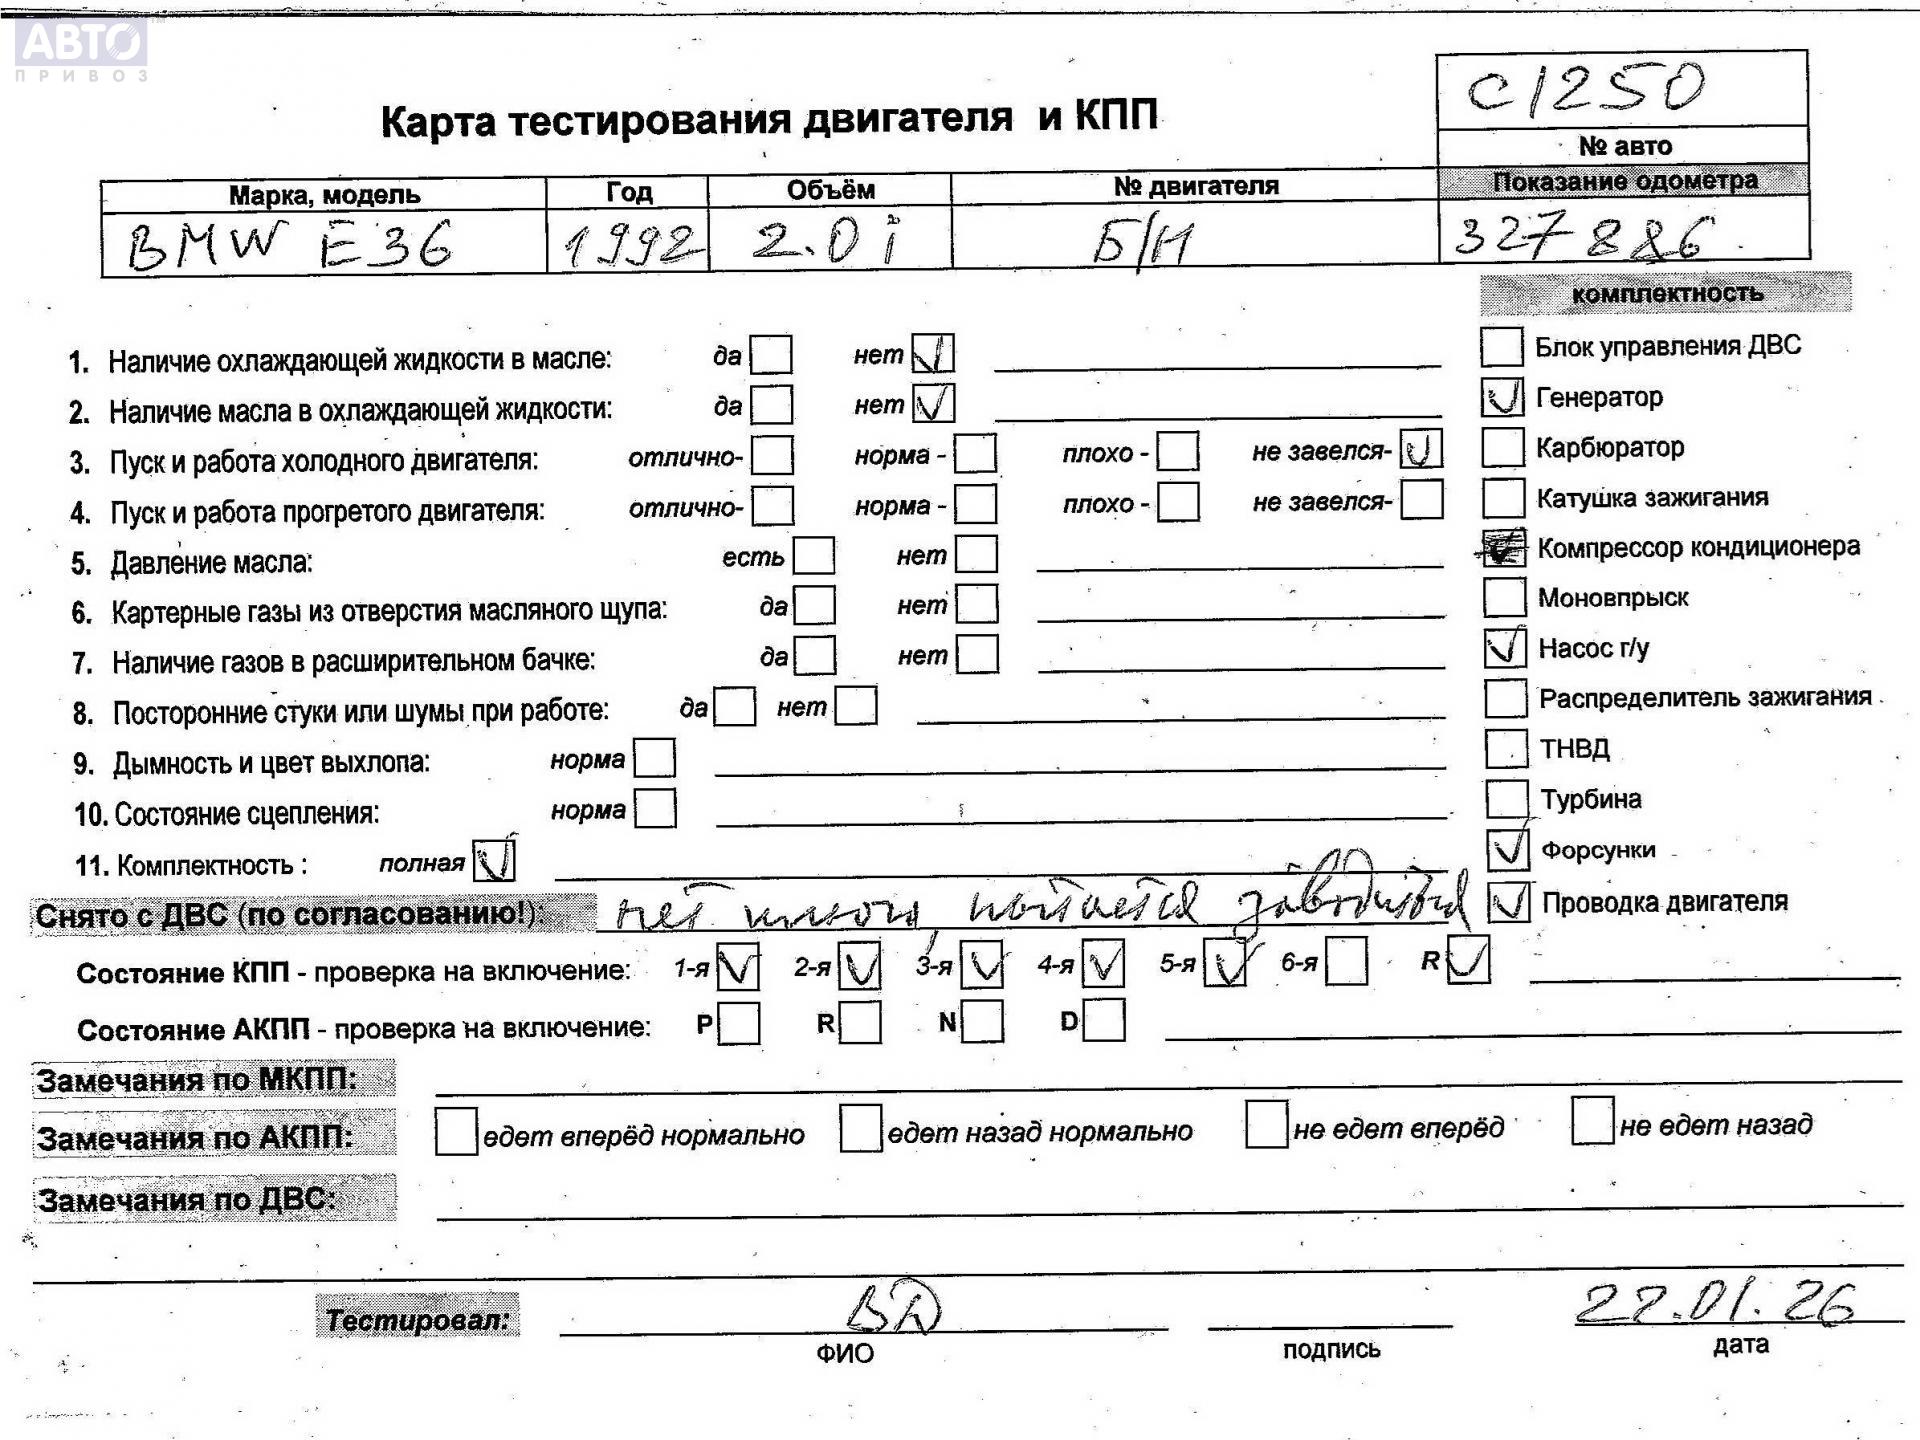 АВТО
ПРИВОЗ
С1250
Карта тестирования двигателя и КПП
№ авто
Марка, модель Год Объём № двигателя Показание одометра
BMW E36 1992 2.0i Б/Н 327886
комплектность
1. Наличие охлаждающей жидкости в масле: да нет Блок управления ДВС
2. Наличие масла в охлаждающей жидкости: да нет Генератор
3. Пуск и работа холодного двигателя: отлично- норма - плохо - не завелся- Карбюратор
4. Пуск и работа прогретого двигателя: отлично- норма - плохо - не завелся- Катушка зажигания
5. Давление масла: есть нет Компрессор кондиционера
6. Картерные газы из отверстия масляного щупа: да нет Моновпрыск
7. Наличие газов в расширительном бачке: да нет Насос г/у
8. Посторонние стуки или шумы при работе: да нет Распределитель зажигания
9. Дымность и цвет выхлопа: норма ТНВД
10. Состояние сцепления: норма Турбина
11. Комплектность : полная Форсунки
Снято с ДВС (по согласованию!): нет ключа, пытается заводиться Проводка двигателя
Состояние КПП - проверка на включение: 1-я 2-я 3-я 4-я 5-я 6-я R
Состояние АКПП - проверка на включение: P R N D
Замечания по МКПП:
Замечания по АКПП: едет вперёд нормально едет назад нормально не едет вперёд не едет назад
Замечания по ДВС:
Тестировал: ВД 22.01.26
ФИО подпись дата